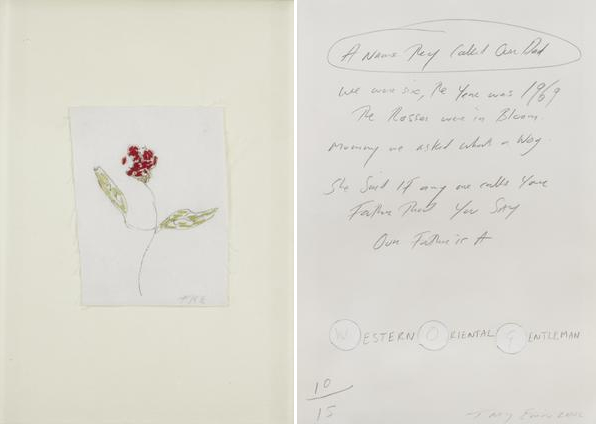 A Name They Called Our Dad
We were six, The Year was 1969
The Rosses were in Bloom
Mummy we asked whats a Wog
She Said If any one calls Your
Father That You Say
Our Father is A
WESTERN ORIENTAL GENTLEMAN
10
15